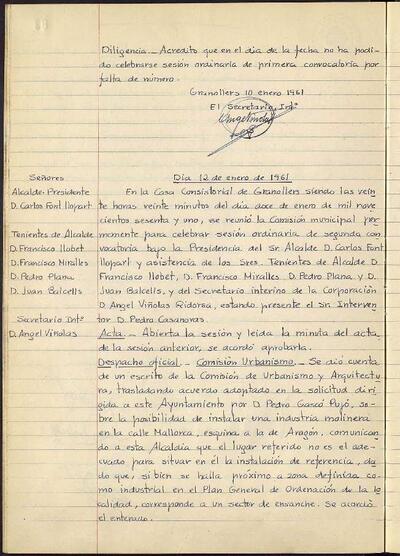 Diligencia.- Acredito que en el día de la fecha no ha podi-
do celebrarse sesión ordinaria de primera convocatoria por
falta de número.
Granollers 10 enero 1961
El Secretario Intº
Señores
Alcalde-Presidente
D. Carlos Font Llopart
Tenientes de Alcalde
D. Francisco Llobet
D. Francisco Miralles
D. Pedro Plana
D. Juan Balcells
Secretario Intº
D. Angel Viñolas
Día 12 de enero de 1961
En la Casa Consistorial de Granollers siendo las vein
te horas veinte minutos del día doce de enero de mil nove
cientos sesenta y uno, se reunió la Comisión municipal per
manente para celebrar sesión ordinaria de segunda con
vocatoria bajo la Presidencia del Sr Alcalde D. Carlos Font
Llopart y asistencia de los Sres. Tenientes de Alcalde D.
Francisco Llobet, D. Francisco Miralles D. Pedro Plana, y D.
Juan Balcells, y del Secretario interino de la Corporación
D. Angel Viñolas Ridorsa, estando presente el Sr. Interven
tor D. Pedro Casanovas.
Acta.- Abierta la sesión y leída la minuta del acta
de la sesión anterior, se acordó aprobarla.
Despacho oficial.- Comisión Urbanismo.- Se dió cuenta
de un escrito de la Comisión de Urbanismo y Arquitectu
ra, trasladando acuerdo adoptado en la solicitud diri
gida a este Ayuntamiento por D. Pedro Gascó Pujó, so-
bre la posibilidad de instalar una industria molinera
en la calle Mallorca, esquina a la de Aragón, comunican
do a esta Alcaldía que el lugar referido no es el ade-
cuado para situar en él la instalación de referencia, da
do que, si bien se halla próximo a zona definida co-
mo industrial en el Plan General de Ordenación de la lo
calidad, corresponde a un sector de ensanche. Se acordó
el enterado.